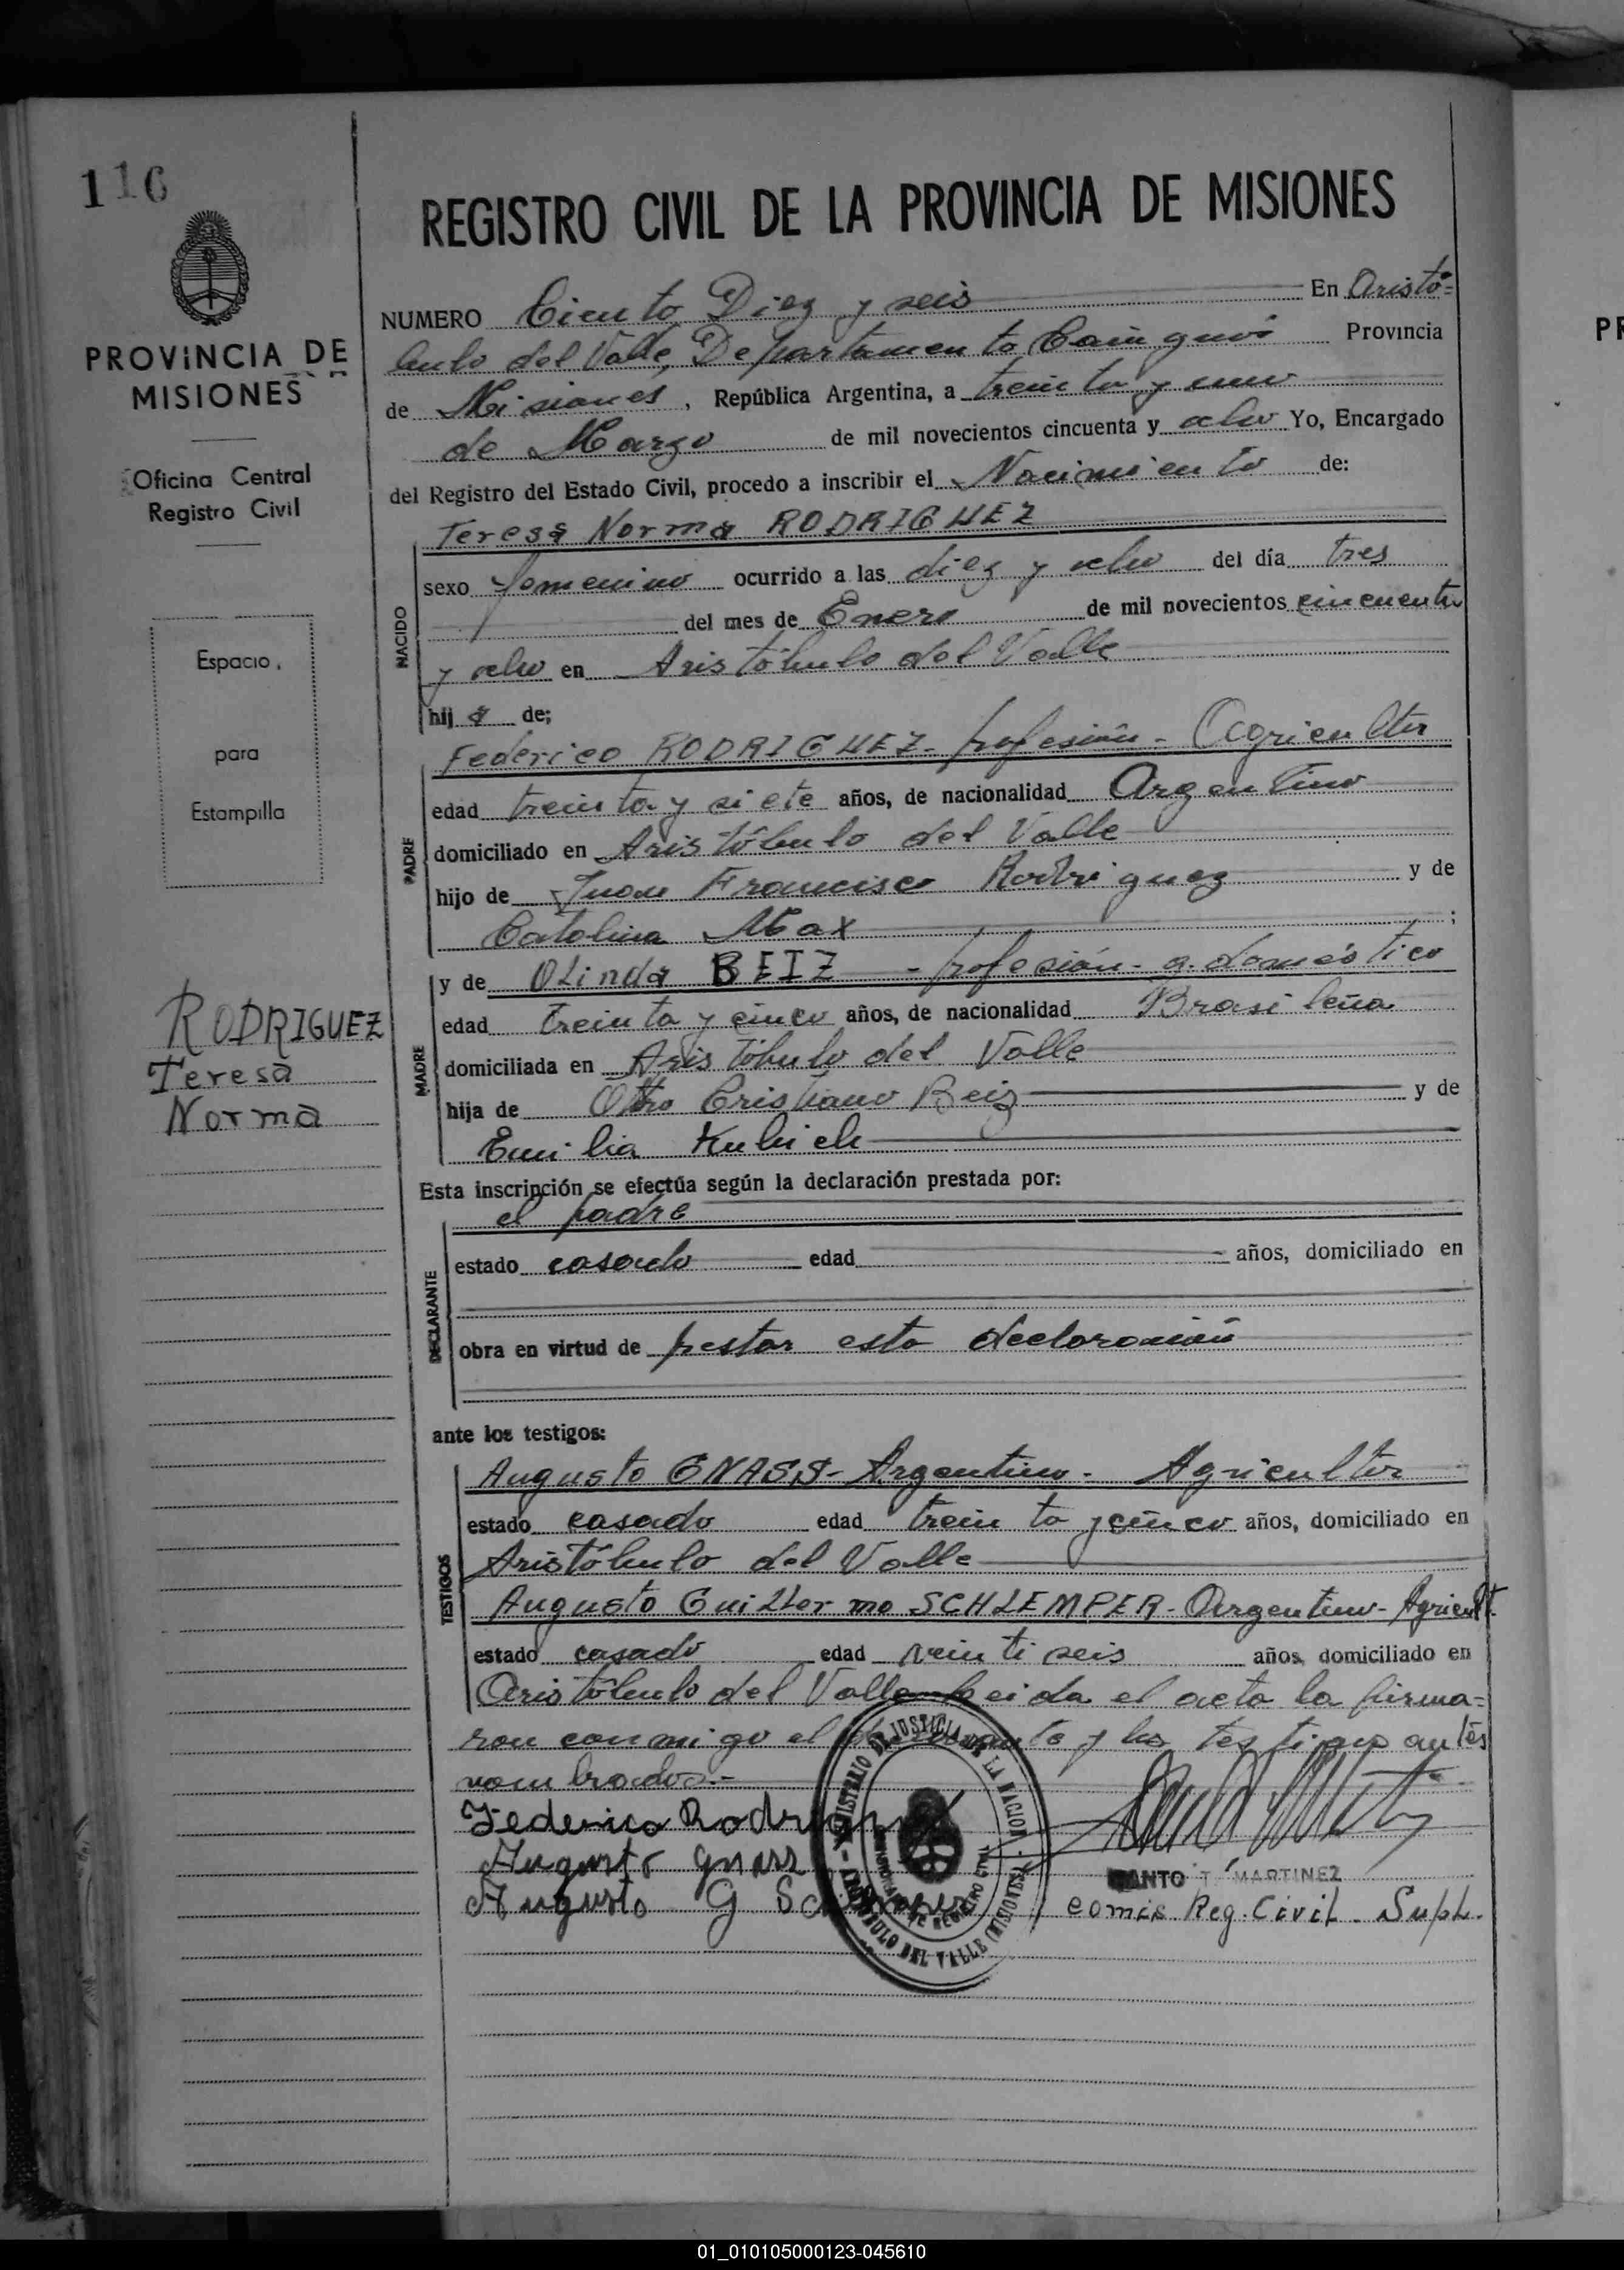 116
PROVINCIA DE
MISIONES
Oficina Central
Registro Civil
Espacio
para
Estampilla
RODRIGUEZ
Teresa
Norma
REGISTRO CIVIL DE LA PROVINCIA DE MISIONES
NUMERO Ciento Diez y seis En Aristó=
bulo del Valle, Departamento Cainguás Provincia
de Misiones, República Argentina, a treinta y uno
de Marzo de mil novecientos cincuenta y ocho Yo, Encargado
del Registro del Estado Civil, procedo a inscribir el Nacimiento de:
Teresa Norma RODRIGUEZ
NACIDO
sexo femenino ocurrido a las diez y ocho del día tres
del mes de Enero de mil novecientos cincuenta
y ocho en Aristóbulo del Valle
hija de;
Federico RODRIGUEZ- profesión- Agricultor
PADRE
edad treinta y siete años, de nacionalidad Argentino
domiciliado en Aristóbulo del Valle
hijo de Juan Francisco Rodriguez y de
Catalina Max ;
y de OLinda BEIZ - profesión- q. doméstico
MADRE
edad treinta y cinco años, de nacionalidad Brasileña
domiciliada en Aristóbulo del Valle
hija de Otto Cristiano Beiz y de
Emilia Kubich
Esta inscripción se efectúa según la declaración prestada por:
el padre
DECLARANTE
estado casado edad años, domiciliado en
obra en virtud de prestar esta declaración
ante los testigos:
Augusto GNASS- Argentino- Agricultor
TESTIGOS
estado casado edad treinta y cinco años, domiciliado en
Aristóbulo del Valle
Augusto Guillermo SCHLEMPER- Argentino- Agricult.
estado casado edad veinti seis años, domiciliado en
Aristóbulo del Valle Leida el acta la firma=
ron conmigo el declarante y los testigos antes
nombrados.-
Federico Rodriguez
Augusto gnass
Augusto G
MINISTERIO DE JUSTICIA DE LA NACION
REGISTRO CIVIL
ARISTOBULO DEL VALLE (MISIONES)
SANTO T MARTINEZ
comis. Reg. Civil Supl.
01_010105000123-045610